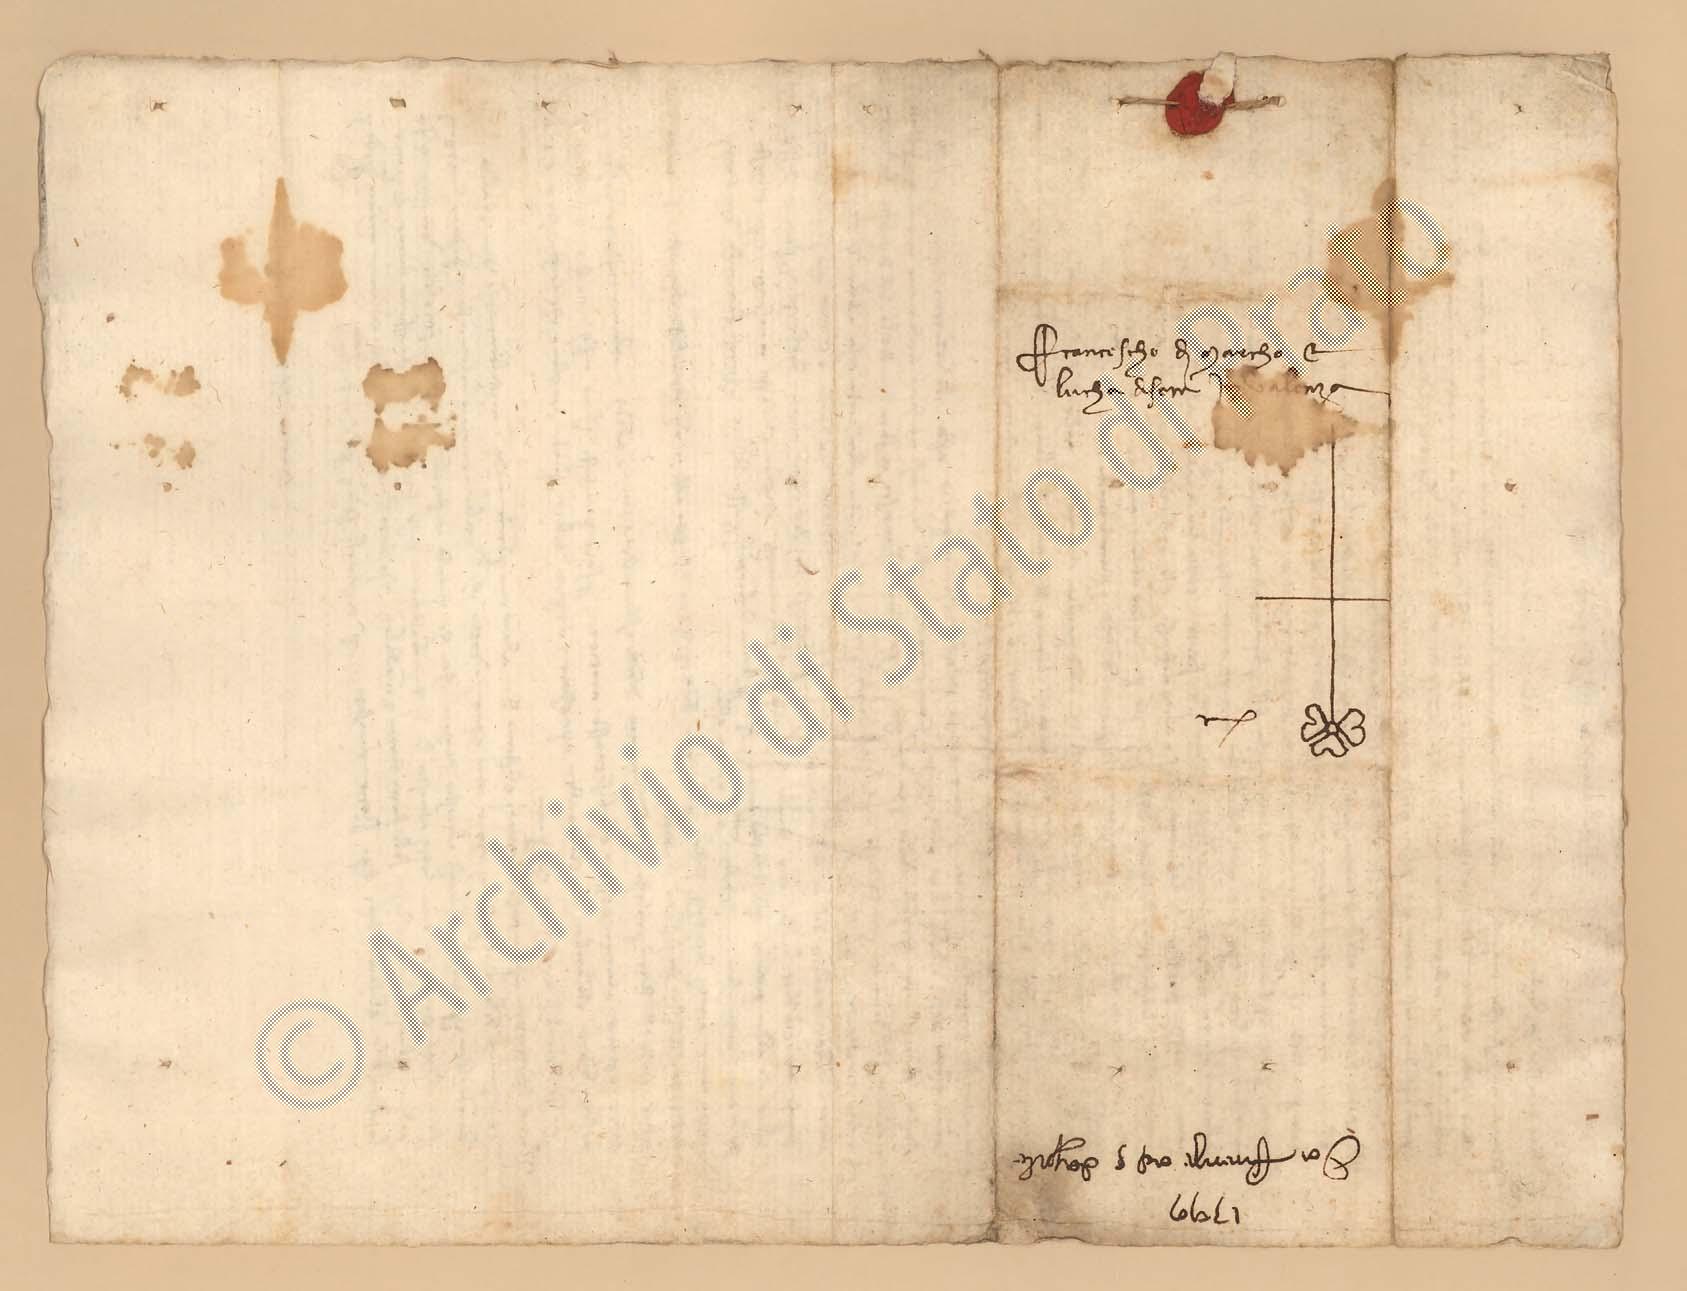 Francescho di Marcho e
Lucha del Sera in Valenza
Da Firenze, a dì 5 d'aghosto
1399
© Archivio di Stato di Prato